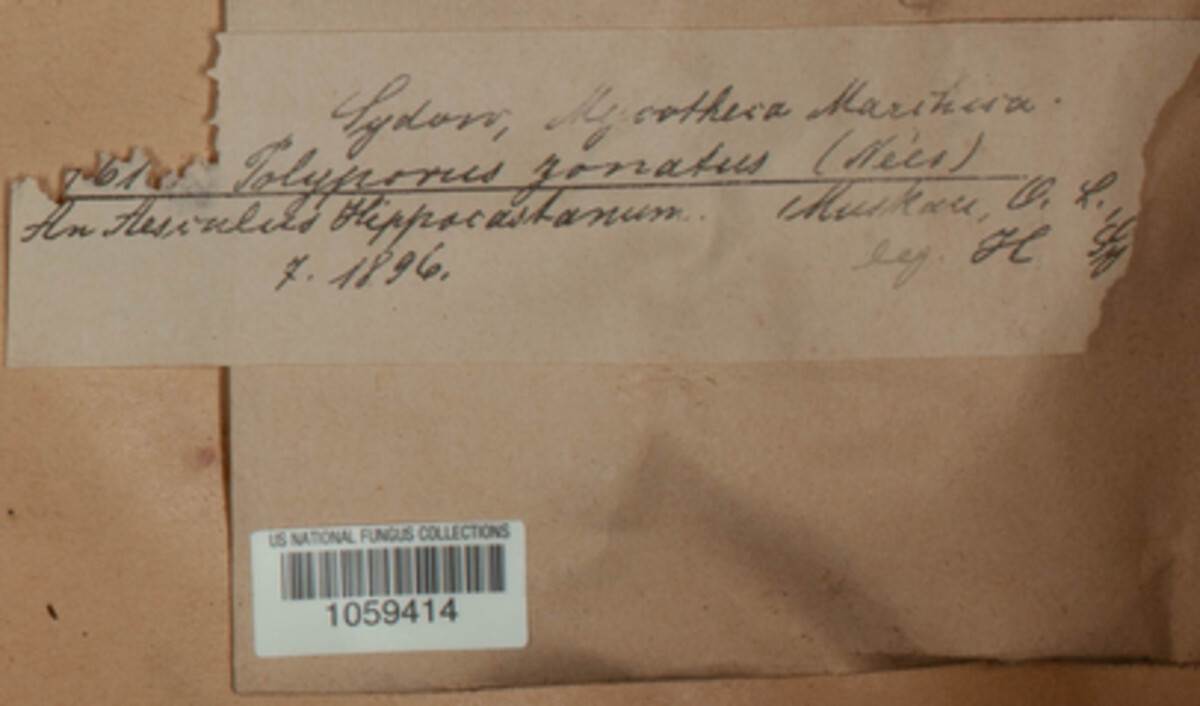 Sydow, Mycotheca Marchica.
Polyporus zonatus (Nees)
An Aesculus Hippocastanum. Muskau, O. L.,
7. 1896. leg. H Sy
US NATIONAL FUNGUS COLLECTIONS
1059414